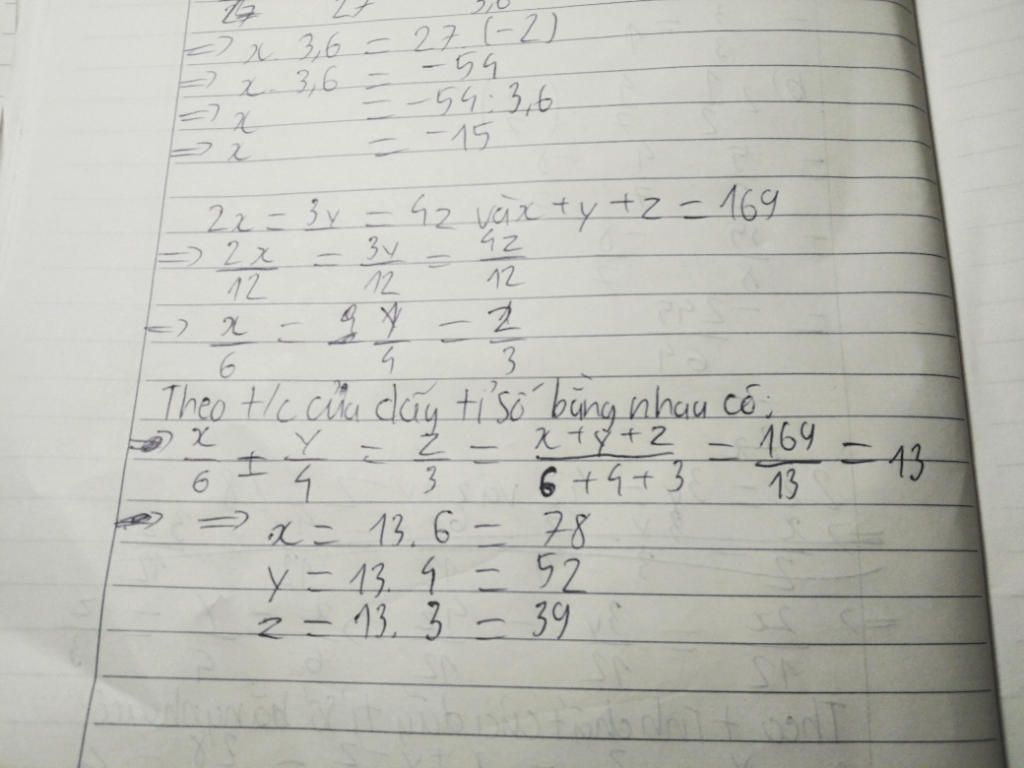 27 27 3,6
=> x. 3,6 = 27 (-2)
=> x. 3,6 = -54
=> x = -54 : 3,6
=> x = -15
2x = 3y = 4z và x + y + z = 169
=> 2x/12 = 3y/12 = 4z/12
=> x/6 = y/4 = z/3
Theo t/c của dãy tỉ số bằng nhau có:
=> x/6 = y/4 = z/3 = x+y+z/6+4+3 = 169/13 = 13
=> x = 13. 6 = 78
y = 13. 4 = 52
z = 13. 3 = 39